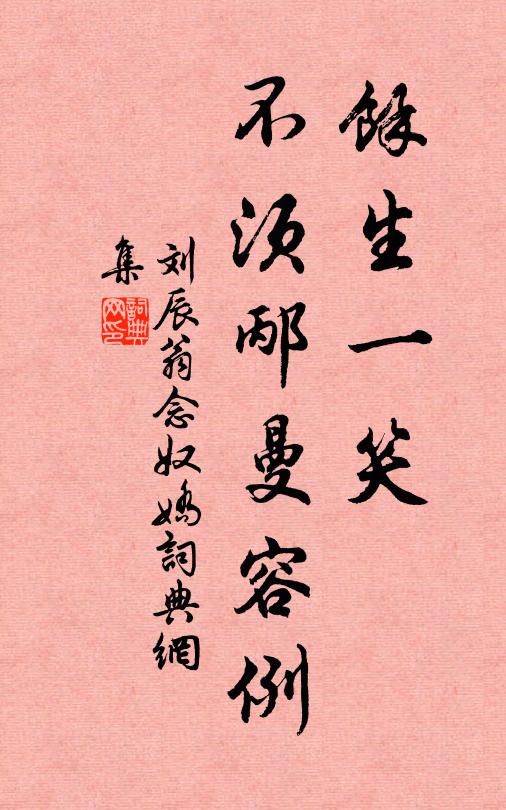 餘生一笑
不須邴曼容例
刘辰翁念奴嬌詞典網
集
詞典网印